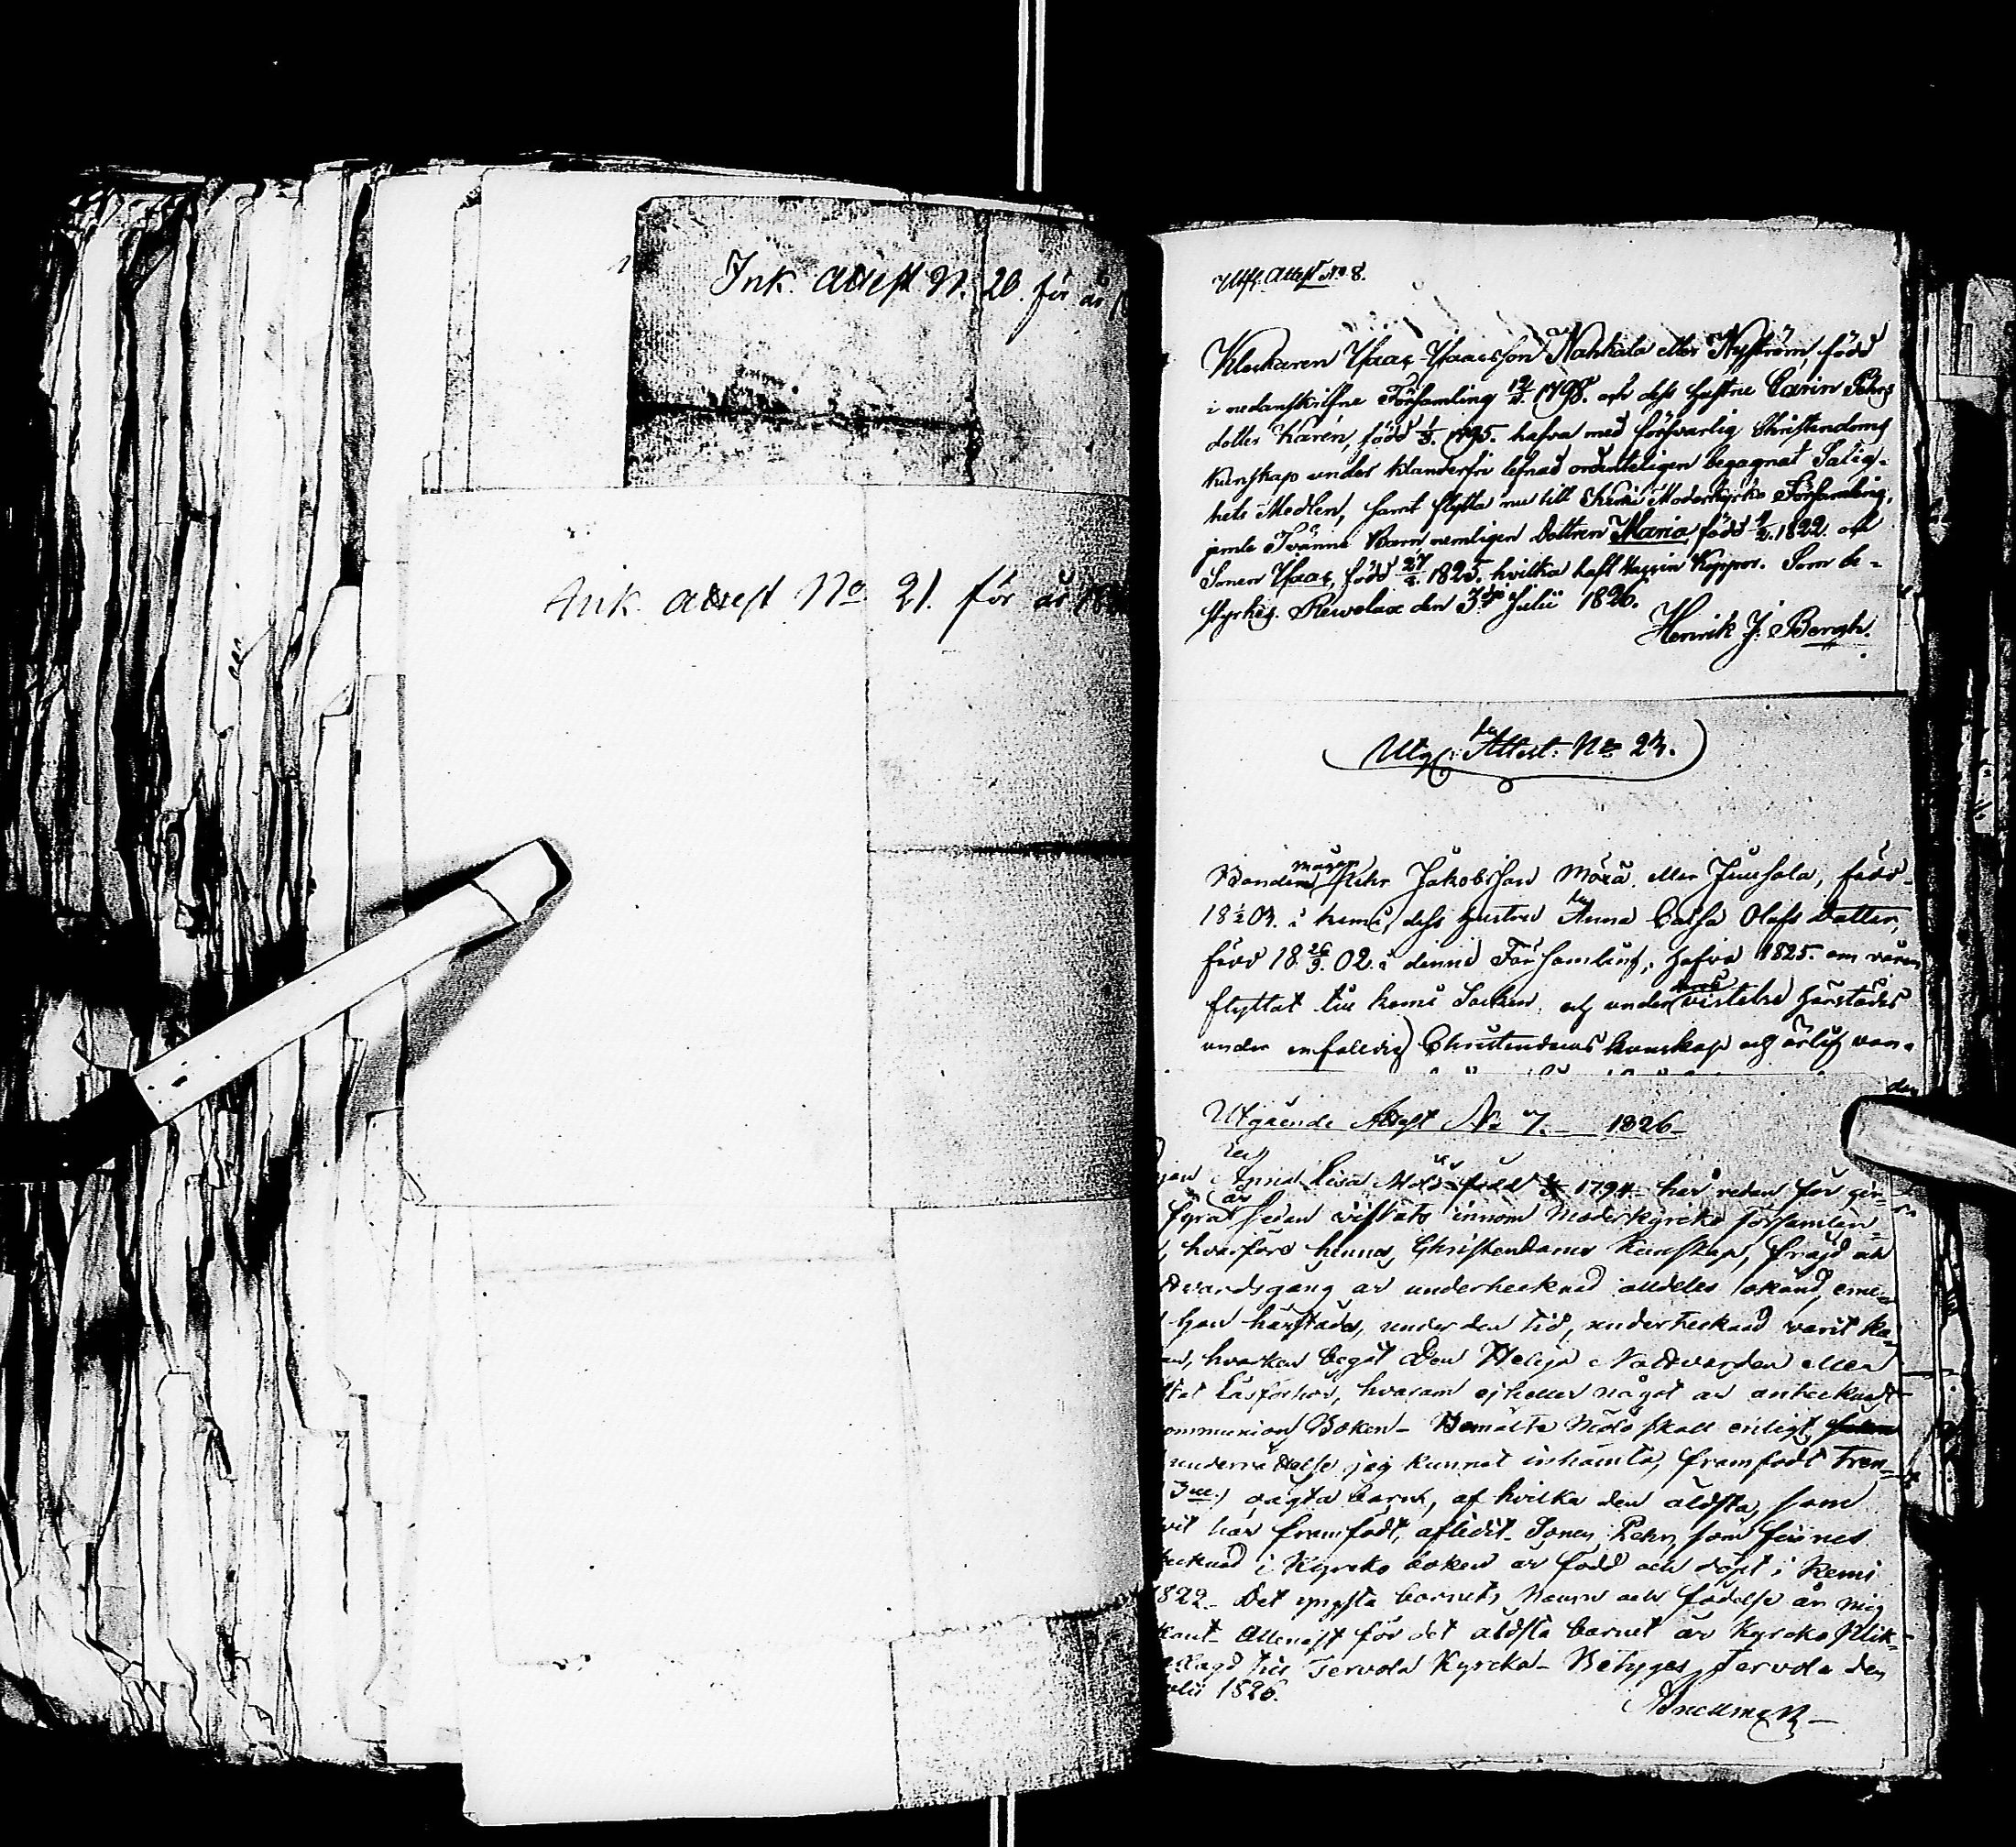 Ink. attest N. 20. för år
Ink. attest No 21. för år 18
Utfl. Attest No 8.
Klockaren Isaac Isaacsson Nahkala eller Nyström, född
i nedanskrifne Församling 1798. och dess hustru Carin Pehrs
dotter Karén, född 1795. hafva med försvarlig Christendoms
kunskap under klanderfri lefnad ordenteligen begagnat Salig-
hets Medlen, samt flytta nu till Kemi Moderkyrko Församling,
jemte Tvänne Barn nemligen Dottren Maria född 1822. och
Sonen Isaac, född 27 1825. hvilka haft Vaccin Koppor. Som be-
styrkes. Rewolax den 3dje Julii 1826.
Henrik J. Bergh.
Utg: Attest. No 23.
Bonden Pehr Jakobsson Möxä eller Juusola, född
18 03. i Kemi, dess hustru Anna Caisa Olofs Dotter,
född 18 26/9. 02. i denne Församling, hafva 1825. om våren
flyttat till Kemi Socken, och under vistelse härstädes
under enfaldig Christendoms kunskap och ärlig van-
Utgående Attest No 7. 1826
Anna Lisa född 1794 har redan för
fyra år sedan vistats innom Moderkyrko församlin-
hvarföre hennes Christendoms Kunskap, frägd och
Nattvardsgang är undertecknad alldeles okänd, eme-
hon härstädes, under den tid, undertecknad varit Ka-
hvarken begåt den Heliga Nattvarden eller
Läsförhör, hvarom ej heller något är antecknadt
ommunion Boken - Bemälte skall enligt
underrättelse jag kunnat inhämta, framfödt Tren-
3ne oägta barn, af hvilka den äldsta, som
här framfödt, aflidit. Sonen Pehr, som finnes
tecknad i Kyrko boken är född och döpt i Kemi
1822 - Det yngsta barnets Namn och födelse är mig
kant - Allenast för det äldsta barnet är Kyrcko Plik-
lagd till Tervola Kyrcka - Betyges, Tervola den
ulii 1826.